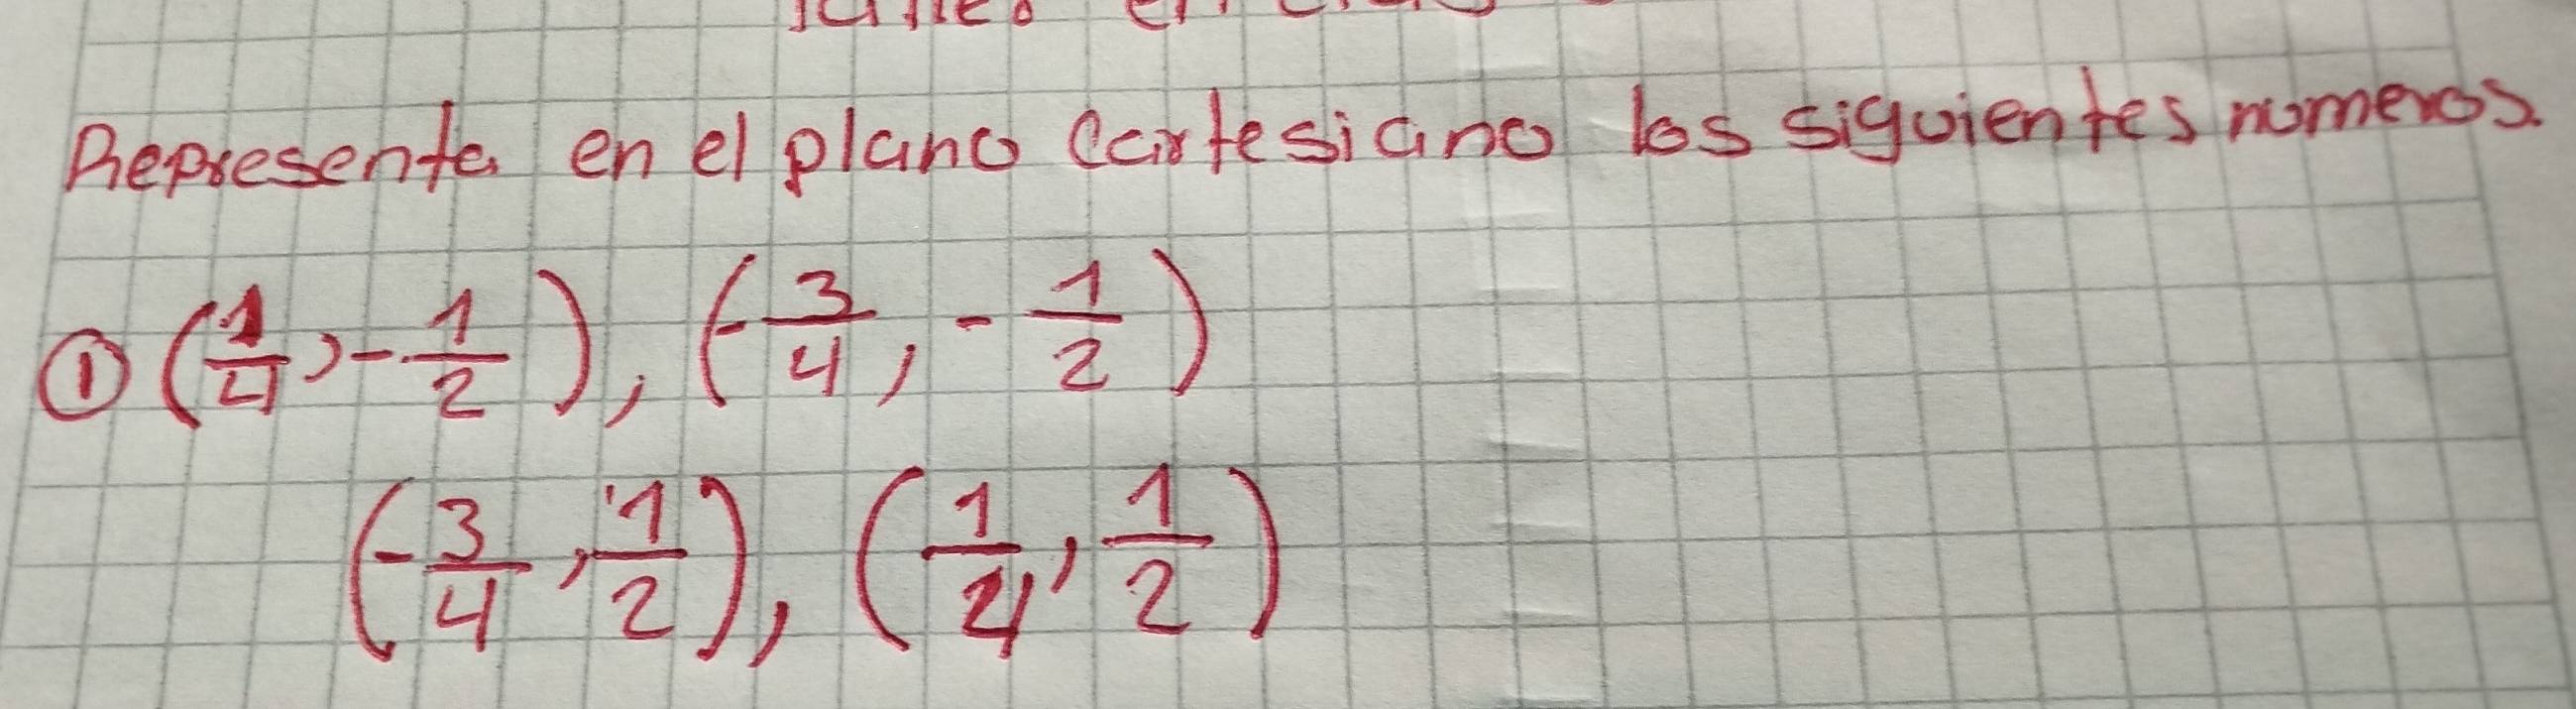 Representa en el plano cartesiano los siguientes numeros.
① (1/4, -1/2), (-3/4, -1/2)
(-3/4, 1/2), (1/4, 1/2)